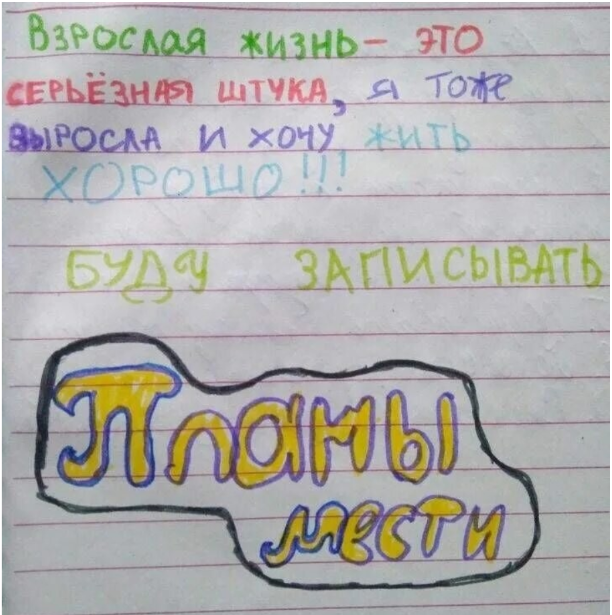 ВЗРОСЛАЯ ЖИЗНЬ - ЭТО
СЕРЬЁЗНАЯ ШТУКА, Я ТОЖЕ
ВЫРОСЛА И ХОЧУ ЖИТЬ
ХОРОШО!!!
БУДУ ЗАПИСЫВАТЬ
Планы
мести